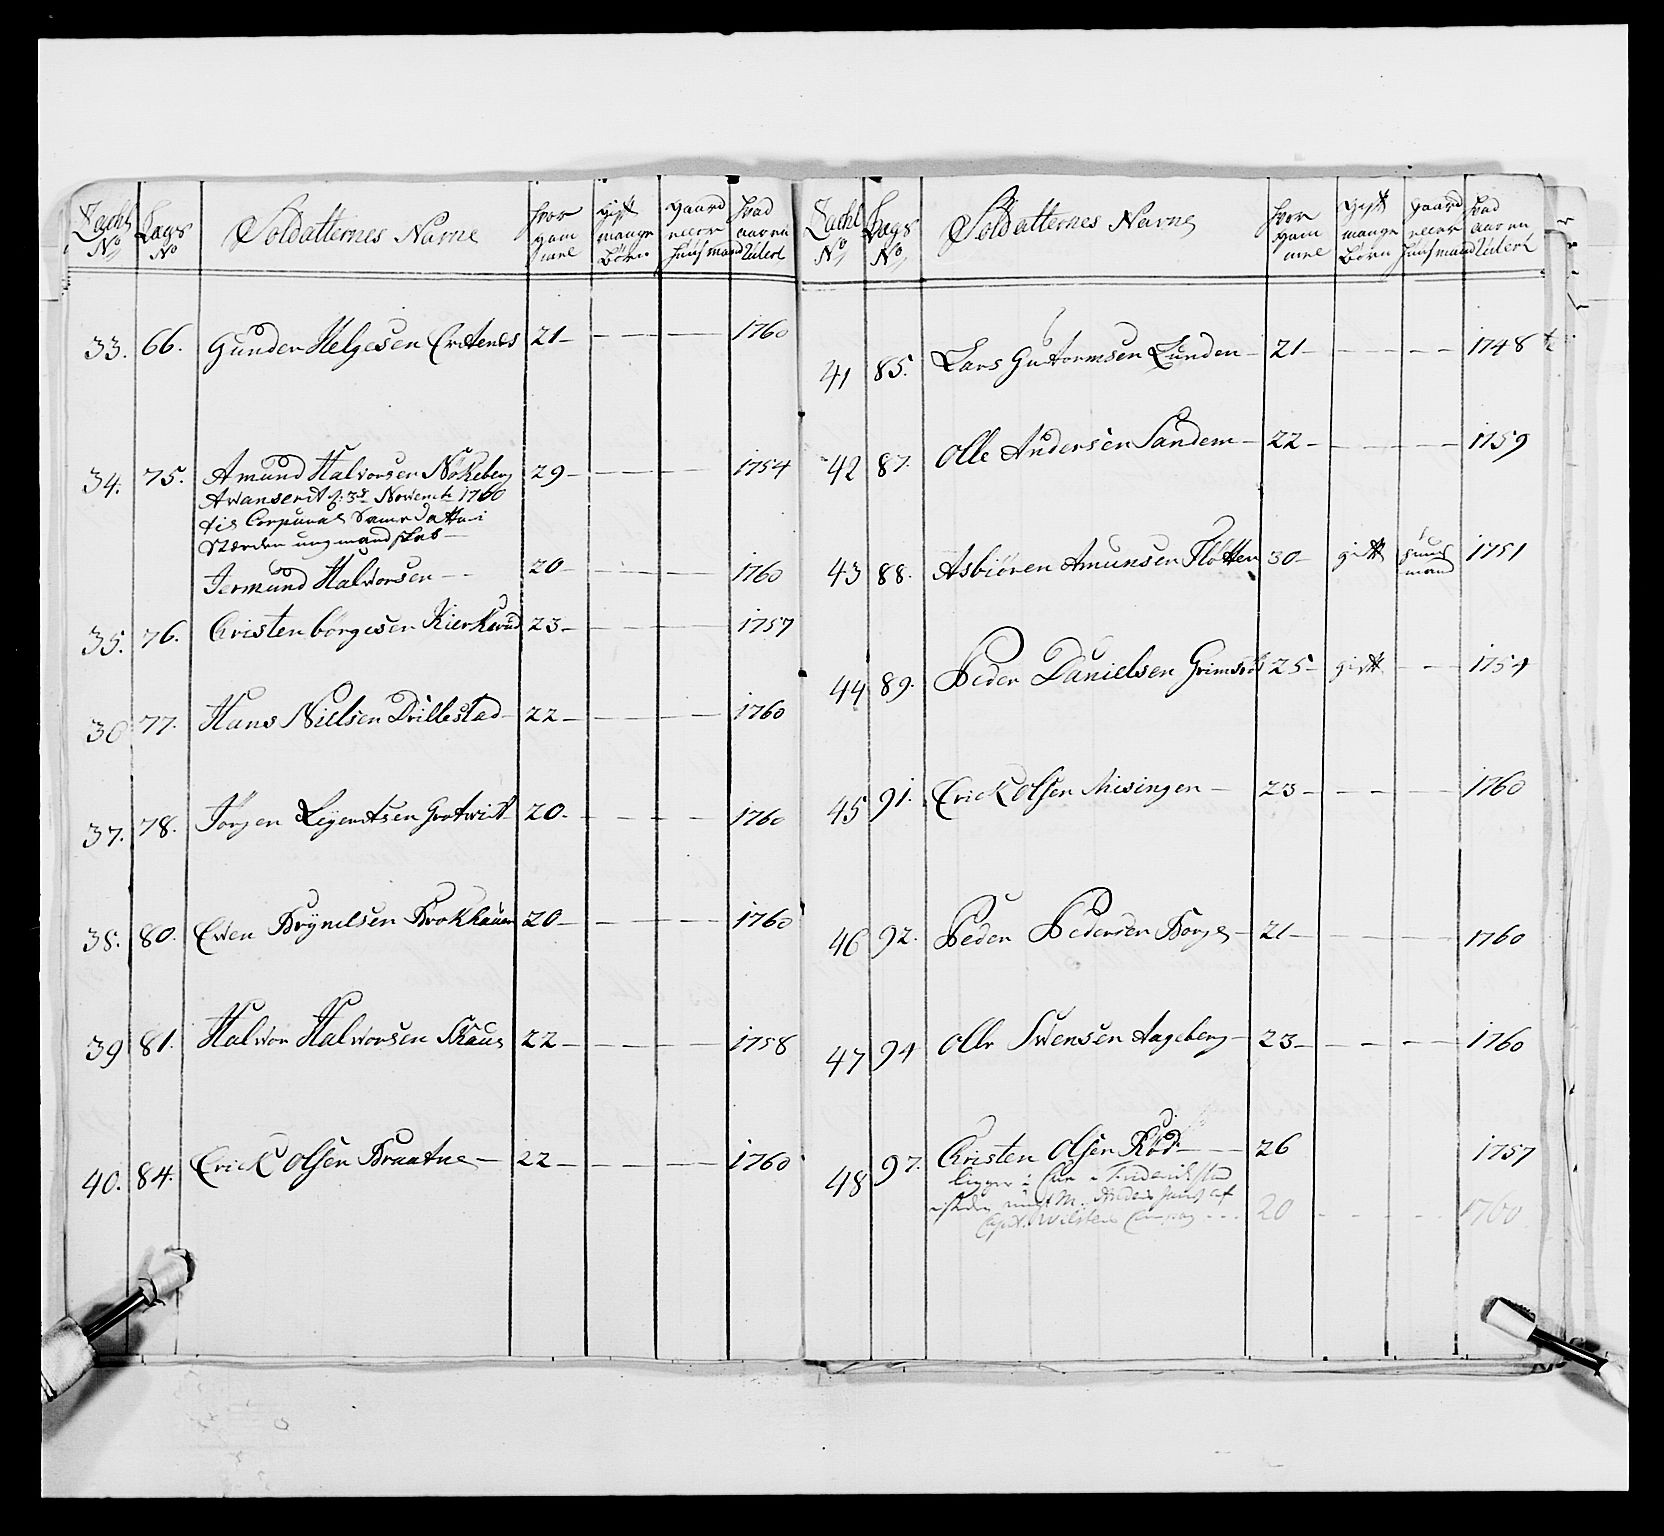 Tachl No
Lægs No
Soldatternes Nafne
hvor gam mel
gift mange Börn
gaard eller huusmand
hvad aar en Rulert
33. 66. Gunder Helgesen 21 — — 1760
34. 75. Amund Halvorsen Nökeberg 29 — — 1754
Avanserit d: 3 Novemb 1760
til Corporal
ung mandskab
Jermund Halvorsen 20 — — 1760
35. 76. Christen börgesen Kierkerud 23 — — 1757
36 77. Hans Nielsen Drillestad 22 — — 1760
37. 78. Jörgen Grotvid 20 — — 1760
38. 80. Even Brÿnelsen Brokhauer 20 — — 1760
39 81. Halvor Halvorsen Skaug 22 — — 1758
40. 84. Erick Olsen Braatne 22 — — 1760
Tachl No
Lægs No
Soldatternes Nafne
hvor gam mel
gift mange Börn
gaard eller huusmand
hvad aar en Rulert
41 85. Lars Guttormsen Lunden 21 — — 1748
42 87. Olle Andersen Sandem 22 — — 1759
43 88. Asbiören Amunsen Flötten 30 gift huus mand 1751
44 89. Peder Danielsen 25 gift — 1754
45 91. Erick Olsen Misingen 23 — — 1760
46 92. Peder Pedersen Borge 21 — — 1760
47 94 Olle Svensen Aageberg 23 — — 1760
48 97. Christen Olsen Röd 26 1757
ligger i Friderichstad
af
Capt. 20 — — 1760